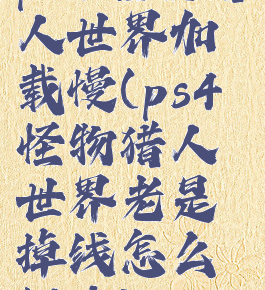 人世界加
载慢(ps4
怪物猎人
世界老是
掉线怎么